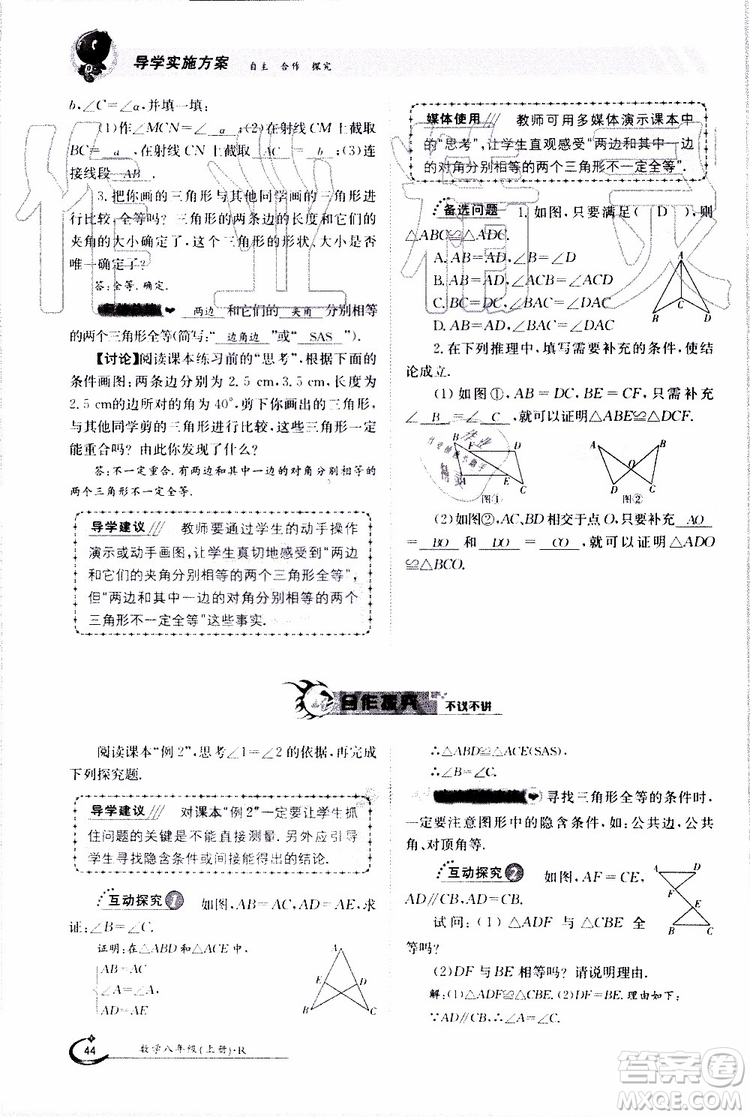 导学实施方案 自主 合作 探究
b,∠C=∠α,并填一填:
(1)作∠MCN=∠ α ;(2)在射线CM上截取
BC= a ,在射线CN上截取 AC = b ;(3)连
接线段 AB .
3.把你画的三角形与其他同学画的三角形进
行比较,全等吗?三角形的两条边的长度和它们的
夹角的大小确定了,这个三角形的形状、大小是否
唯一确定了?
答:全等.确定.
两边 和它们的 夹角 分别相等
的两个三角形全等(简写:“ 边角边 ”或“ SAS ”).
【讨论】阅读课本练习前的“思考”,根据下面的
条件画图:两边分别为2.5 cm,3.5 cm,长度为
2.5 cm的边所对的角为40°,剪下你画出的三角形,
与其他同学剪的三角形进行比较,这些三角形一定
能重合吗?由此你发现了什么?
答:不一定重合.有两边和其中一边的对角分别相等的
两个三角形不一定全等.
导学建议 教师要通过学生的动手操作
演示或动手画图,让学生真切地感受到“两边
和它们的夹角分别相等的两个三角形全等”,
但“两边和其中一边的对角分别相等的两个
三角形不一定全等”这些事实.
媒体使用 教师可用多媒体演示课本中
的“思考”,让学生直观感受“两边和其中一边
的对角分别相等的两个三角形不一定全等”.
备选问题 1.如图,只要满足( D ),则
△ABC≌△ADC.
A.AB=AD,∠B=∠D
2.在下列推理中,填写需要补充的条件,使结
论成立.
(1)如图①,AB=DC,BE=CF,只要补充
∠ B =∠ C ,就可以证明△ABE≌△DCF.
A B C D
B F A D E C
图①
A B O D C
图②
(2)如图②,AC,BD相交于点O,只要补充 AO
= BO 和 DO = CO ,就可以证明△ADO
≌△BCO.
不议不讲
阅读课本“例2”,思考∠1=∠2的依据,再完成
下列探究题.
导学建议 对课本“例2”一定要让学生抓
住问题的关键是不能直接测量.另外应引导
学生寻找隐含条件或间接能得出的结论.
互动探究 1 如图,AB=AC,AD=AE,求
证:∠B=∠C.
证明:在△ABD和△ACE中,
AB=AC
∠A=∠A,
AD=AE
A E D B C
∴△ABD≌△ACE(SAS),
∴∠B=∠C.
寻找三角形全等的条件时,
一定要注意图形中的隐含条件,如:公共边、公共
角、对顶角等.
互动探究 2 如图,AF=CE,
AD∥CB,AD=CB.
试问:(1)△ADF与△CBE全
等吗?
(2)DF与BE相等吗?请说明理由.
解:(1)△ADF≌△CBE.(2)DF=BE.理由略.
A D E F B C
44 数学八年级(上册)·R
答案圈
MXQE.COM